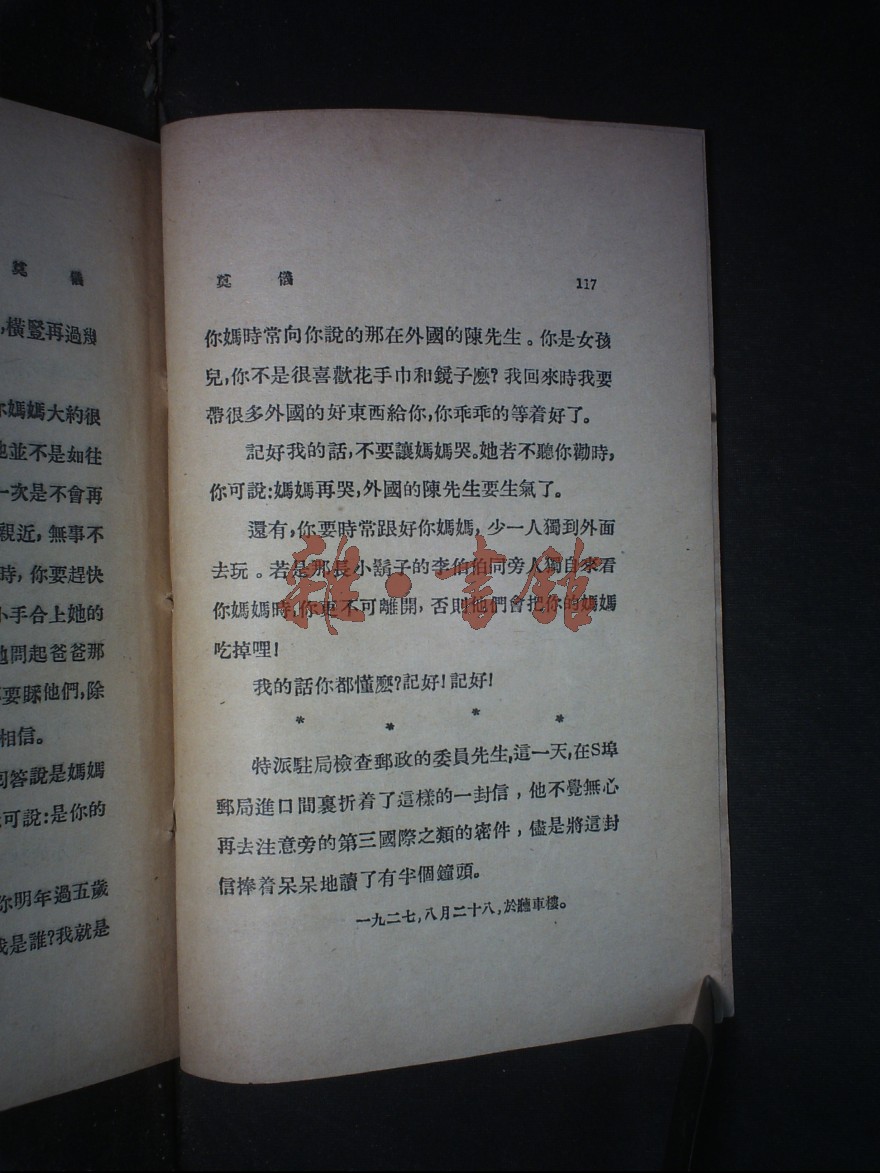 奠 儀
,橫豎再過幾
你媽媽大約很
也並不是如往
一次是不會再
親近,無事不
時,你要趕快
小手合上她的
地問起爸爸那
要睬他們,除
相信。
答說是媽媽
可說:是你的
你明年過五歲
我是誰?我就是
奠 儀 117
你媽時常向你說的那在外國的陳先生。你是女孩
兒,你不是很喜歡花手巾和鏡子麽?我回來時我要
帶很多外國的好東西給你,你乖乖的等着好了。
記好我的話,不要讓媽媽哭。她若不聽你勸時,
你可說:媽媽再哭,外國的陳先生要生氣了。
還有,你要時常跟好你媽媽,少一人獨到外面
去玩。若是那長小鬍子的李伯伯同旁人獨自來看
你媽媽時,你更不可離開,否則他們會把你的媽媽
吃掉哩!
我的話你都懂麽?記好!記好!
* * * *
特派駐局檢查郵政的委員先生,這一天,在S埠
郵局進口間裏折着了這樣的一封信,他不覺無心
再去注意旁的第三國際之類的密件,儘是將這封
信捧着呆呆地讀了有半個鐘頭。
一九二七,八月二十八,於聽車樓。
雜·書館